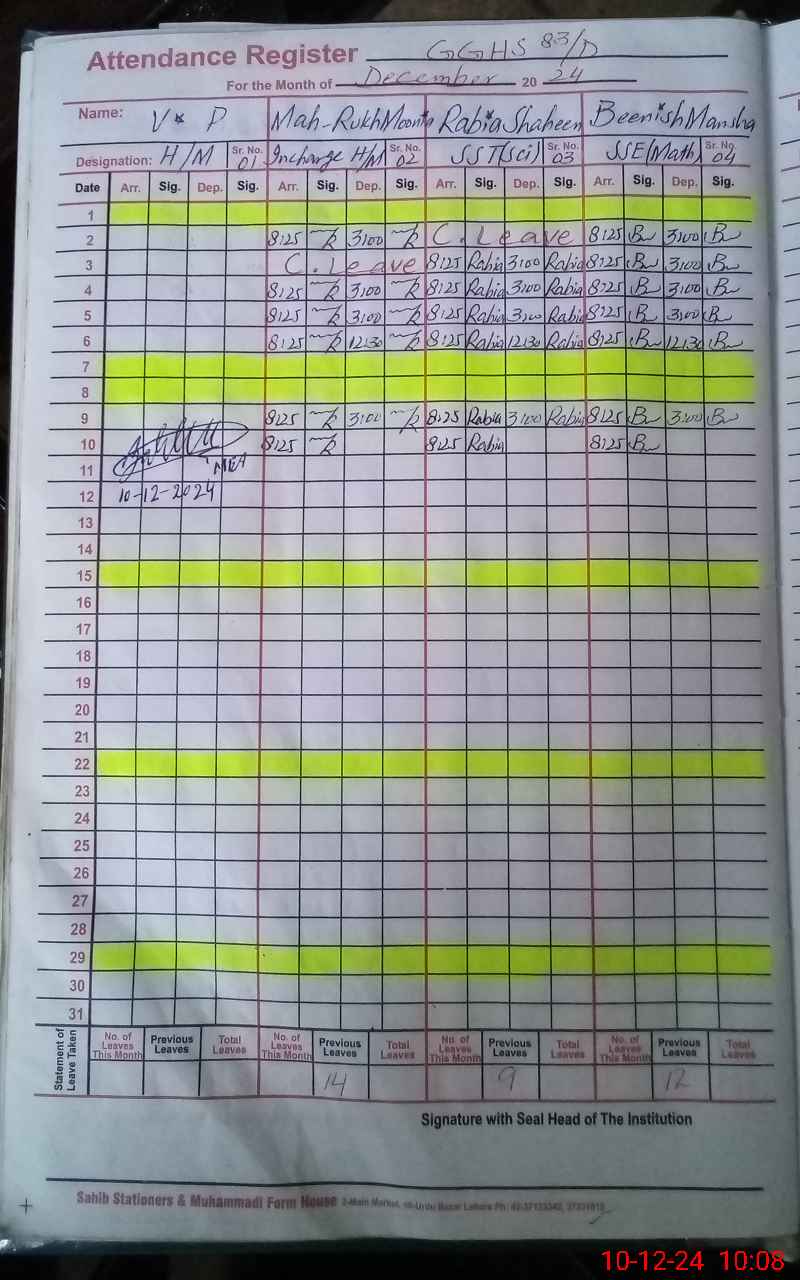 Attendance Register GGHS 83/D
For the Month of December 20 24
Name: V * P Mah-Rukh Moonis Rabia Shaheen Beenish Mansha
Designation: H/M Sr. No. 01 Incharge H/M Sr. No. 02 SST(sci) Sr. No. 03 SSE(Math) Sr. No. 04
Date Arr. Sig. Dep. Sig. Arr. Sig. Dep. Sig. Arr. Sig. Dep. Sig. Arr. Sig. Dep. Sig.
1
2 8:25 3:00 C. Leave 8:25 3:00
3 C. Leave 8:25 Rabia 3:00 Rabia 8:25 3:00
4 8:25 3:00 8:25 Rabia 3:00 Rabia 8:25 3:00
5 8:25 3:00 8:25 Rabia 3:00 Rabia 8:25 3:00
6 8:25 12:30 8:25 Rabia 12:30 Rabia 8:25 12:30
7
8
9 8:25 3:00 8:25 Rabia 3:00 Rabia 8:25 3:00
10 8:25 8:25 Rabia 8:25
11 MEA
12 10-12-2024
13
14
15
16
17
18
19
20
21
22
23
24
25
26
27
28
29
30
31
Statement of Leave Taken
No. of Leaves This Month Previous Leaves Total Leaves No. of Leaves This Month Previous Leaves Total Leaves No. of Leaves This Month Previous Leaves Total Leaves No. of Leaves This Month Previous Leaves Total Leaves
14 9 12
Signature with Seal Head of The Institution
Sahib Stationers & Muhammadi Form House 2-Main Market, Urdu Bazar Lahore Ph:
10-12-24 10:08